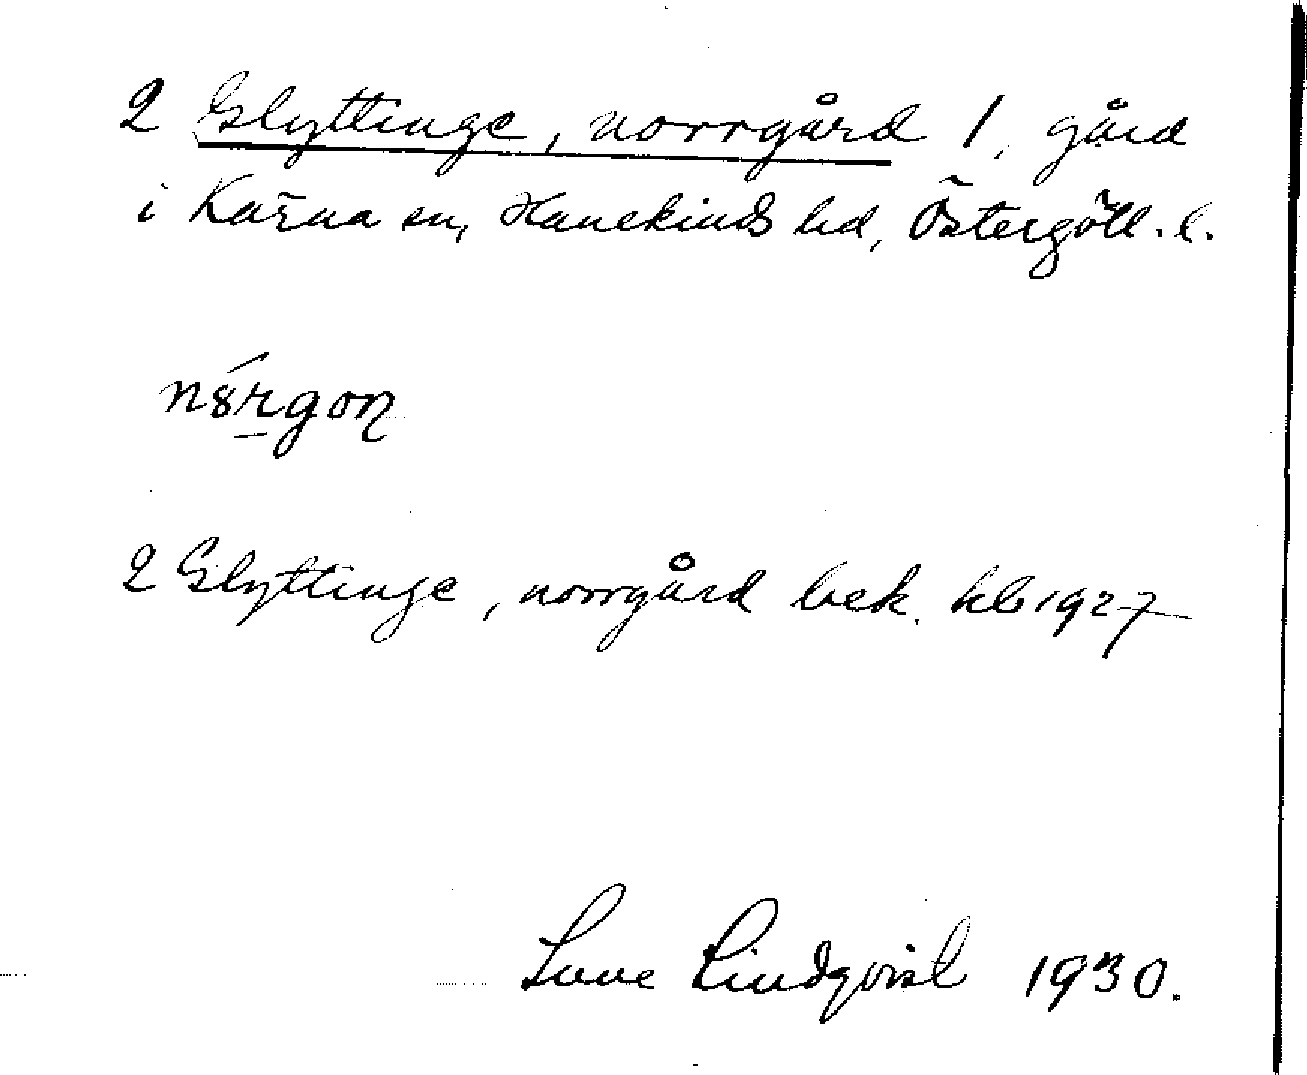 2 Glyttinge, norrgård 1, gård
i Kärna sn, Hanekinds hd, Östergötl. l.
nórgon
2 Glyttinge, norrgård bek. kb 1927
Sune Lindqvist 1930.